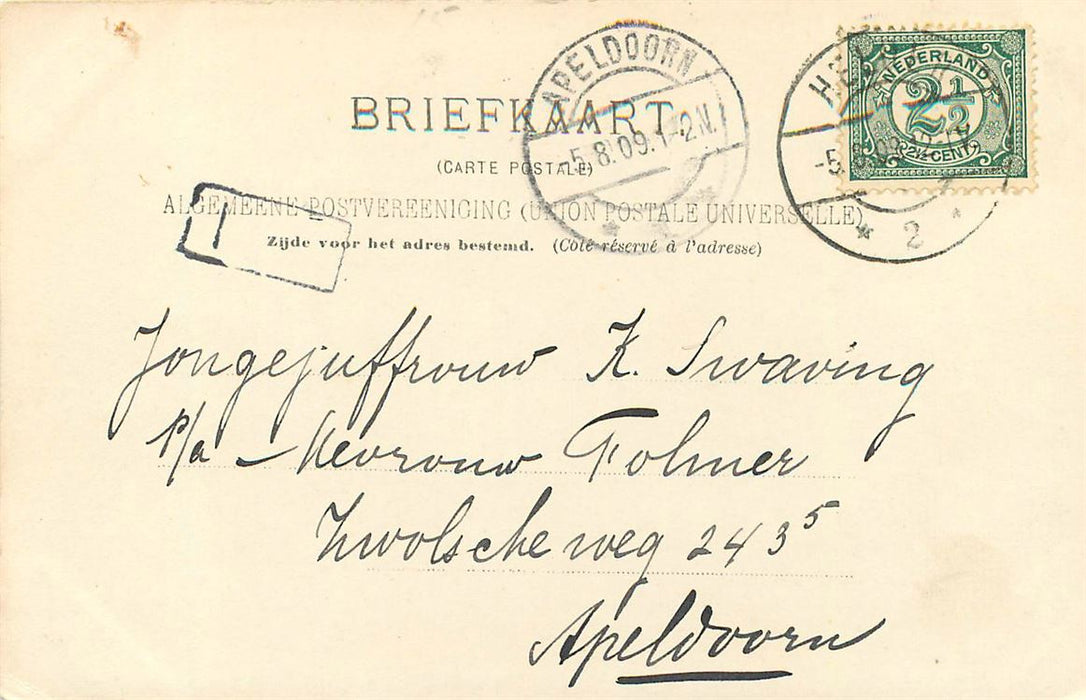 BRIEFKAART.
(CARTE POSTALE)
ALGEMEENE POSTVEREENIGING (UNION POSTALE UNIVERSELLE)
Zijde voor het adres bestemd. (Côté réservé à l'adresse)
APELDOORN
-5.8.09.1-2N.
NEDERLAND
2½
2½ CENT
2
Jongejuffrouw K. Swaving
p/a – Mevrouw Folmer
Zwolscheweg 243⁵
Apeldoorn